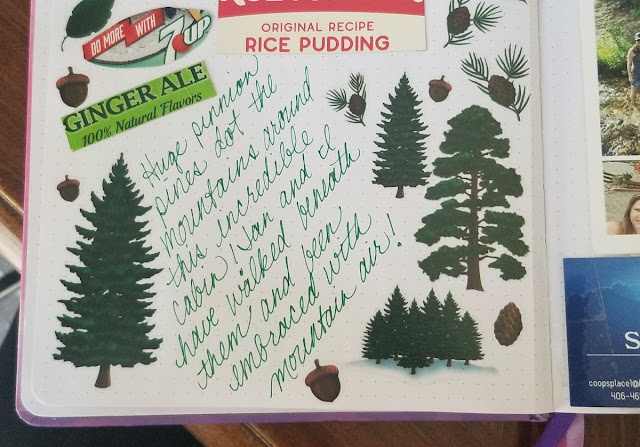 ORIGINAL RECIPE
RICE PUDDING
DO MORE WITH
7UP
GINGER ALE
100% Natural Flavors
Huge pinnion
pines dot the
mountains around
this incredible
cabin! Nan and I
have walked beneath
them and been
embraced with
mountain air!